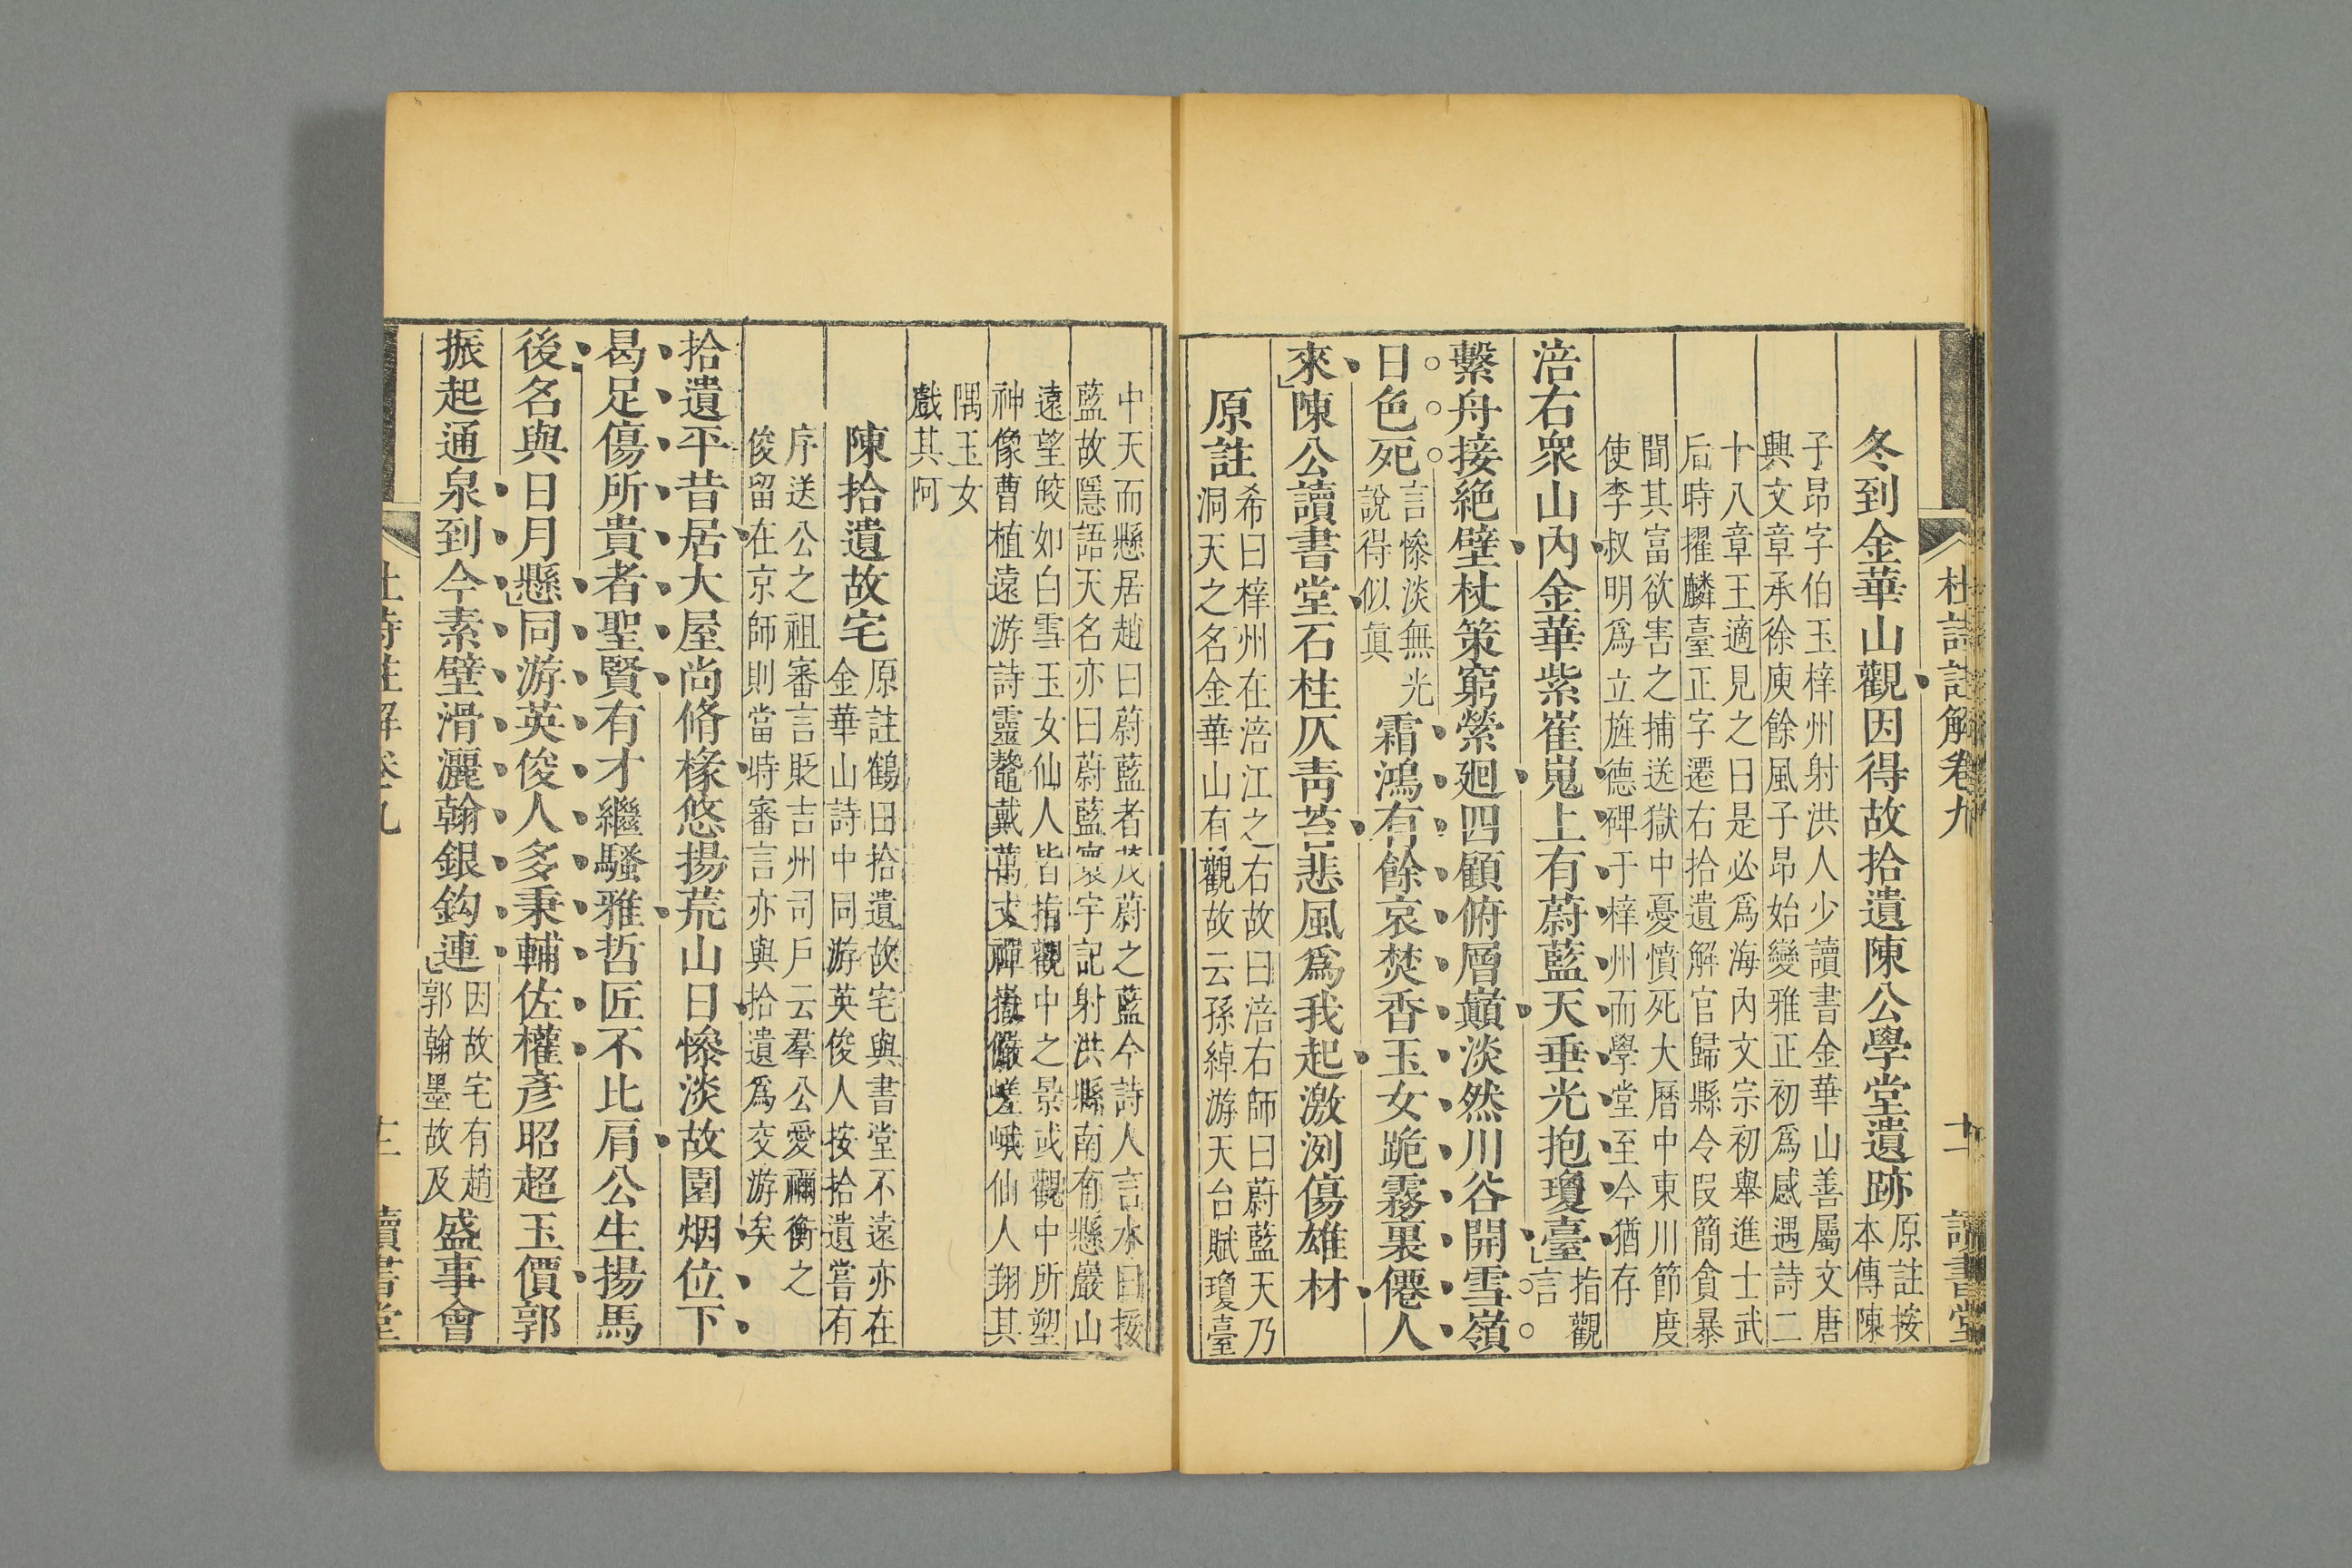 杜詩註解卷九　十一　讀書堂
冬到金華山觀因得故拾遺陳公學堂遺跡原註按本傳陳
子昂字伯玉梓州射洪人少讀書金華山善屬文唐
興文章承徐庾餘風子昂始變雅正初爲感遇詩二
十八章王適見之曰是必爲海內文宗初舉進士武
后時擢麟臺正字遷右拾遺解官歸縣令段簡貪暴
聞其富欲害之捕送獄中憂憤死大曆中東川節度
使李叔明爲立旌德碑于梓州而學堂至今猶存
涪右衆山內金華紫崔嵬上有蔚藍天垂光抱瓊臺指觀言
繫舟接絕壁杖策窮縈廻四顧俯層巔淡然川谷開雪嶺
日色死言慘淡無光說得似眞霜鴻有餘哀焚香玉女跪霧裏僊人
來陳公讀書堂石柱仄靑苔悲風爲我起激洌傷雄材
原註希曰梓州在涪江之右故曰涪右師曰蔚藍天乃
洞天之名金華山有觀故云孫綽游天台賦瓊臺
中天而懸居趙曰蔚藍者茂蔚之藍今詩人言水曰挼
藍故隱語天名亦曰蔚藍寰宇記射洪縣南有懸巖山
遠望皎如白雪玉女仙人皆指觀中之景或觀中所塑
神像曹植遠游詩靈鼇戴萬丈神嶽儼嵯峨仙人翔其
隅玉女
戲其阿
陳拾遺故宅原註鶴曰拾遺故宅與書堂不遠亦在
金華山詩中同游英俊人按拾遺嘗有
序送公之祖審言貶吉州司戶云羣公愛禰衡之
俊留在京師則當時審言亦與拾遺爲交游矣
拾遺平昔居大屋尚脩椽悠揚荒山日慘淡故園烟位下
曷足傷所貴者聖賢有才繼騷雅哲匠不比肩公生揚馬
後名與日月懸同游英俊人多秉輔佐權彥昭超玉價郭
振起通泉到今素壁滑灑翰銀鈎連因故宅有趙郭翰墨故及盛事會
杜詩註解卷九　讀書堂